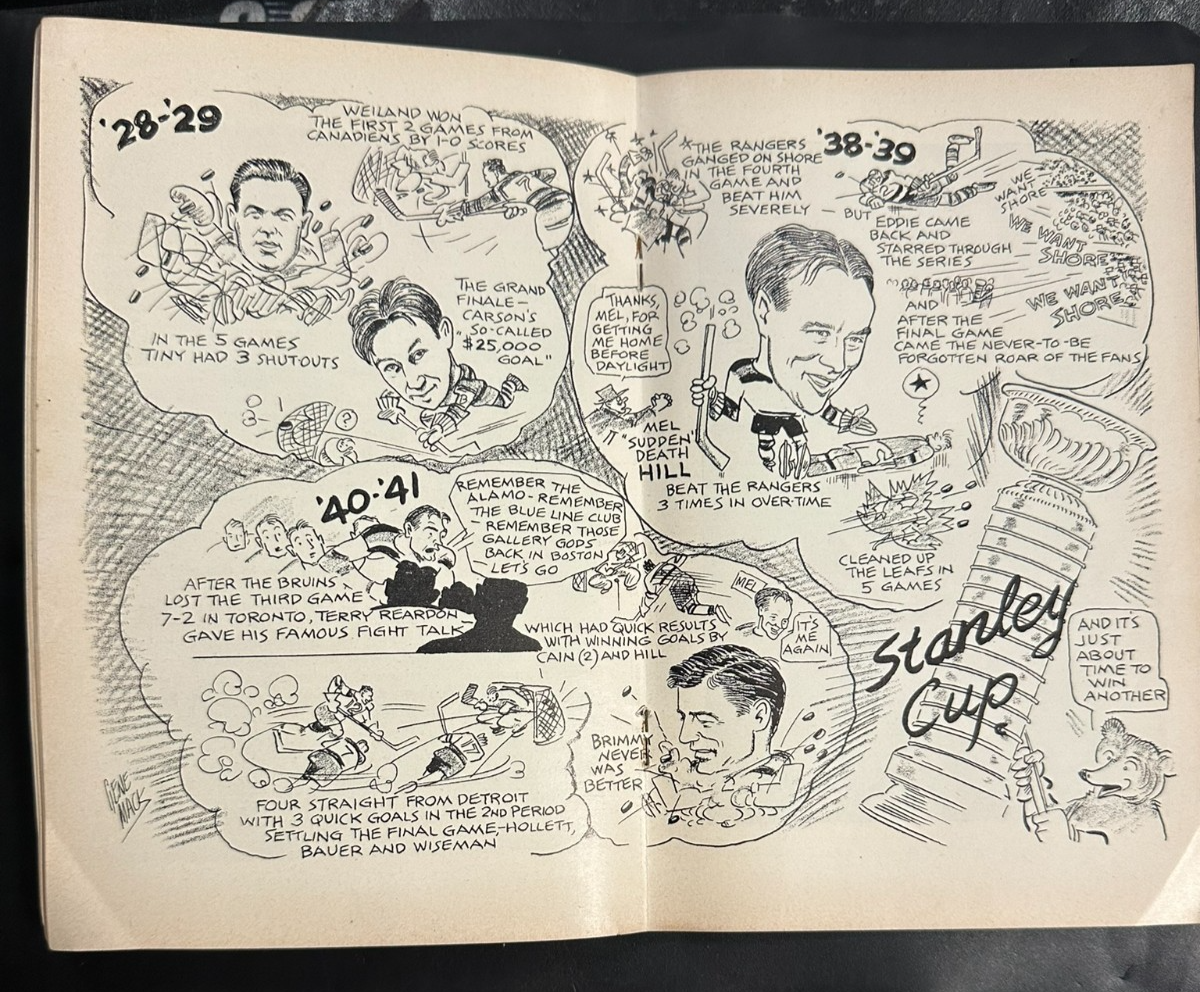 '28-'29
WEILAND WON
THE FIRST 2 GAMES FROM
CANADIENS BY 1-0 SCORES
IN THE 5 GAMES
TINY HAD 3 SHUT-OUTS
THE GRAND
FINALE-
CARSON'S
"SO-CALLED
$25,000
GOAL"
?
'38-'39
THE RANGERS
GANGED ON SHORE
IN THE FOURTH
GAME AND
BEAT HIM
SEVERELY
BUT EDDIE CAME
BACK AND
STARRED THROUGH
THE SERIES
WE
WANT
SHORE
WE WANT
SHORE
WE WANT
SHORE
AND
AFTER THE
FINAL GAME
CAME THE NEVER-TO-BE
FORGOTTEN ROAR OF THE FANS
THANKS,
MEL, FOR
GETTING
ME HOME
BEFORE
DAYLIGHT
MEL
"SUDDEN"
DEATH
HILL
BEAT THE RANGERS
3 TIMES IN OVER-TIME
CLEANED UP
THE LEAFS IN
5 GAMES
'40-'41
REMEMBER THE
ALAMO-REMEMBER
THE BLUE LINE CLUB
- REMEMBER THOSE
GALLERY GODS
BACK IN BOSTON
- LET'S GO
AFTER THE BRUINS
LOST THE THIRD GAME
7-2 IN TORONTO, TERRY REARDON
GAVE HIS FAMOUS FIGHT TALK
WHICH HAD QUICK RESULTS
WITH WINNING GOALS BY
CAIN (2) AND HILL
MEL
IT'S
ME
AGAIN
FOUR STRAIGHT FROM DETROIT
WITH 3 QUICK GOALS IN THE 2ND PERIOD
SETTLING THE FINAL GAME,-HOLLETT,
BAUER AND WISEMAN
BRIMMY
NEVER
WAS
BETTER
Stanley
Cup
AND IT'S
JUST
ABOUT
TIME TO
WIN
ANOTHER
GENE
MACK